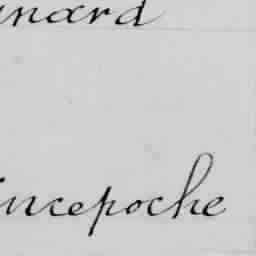 nard
incepoche